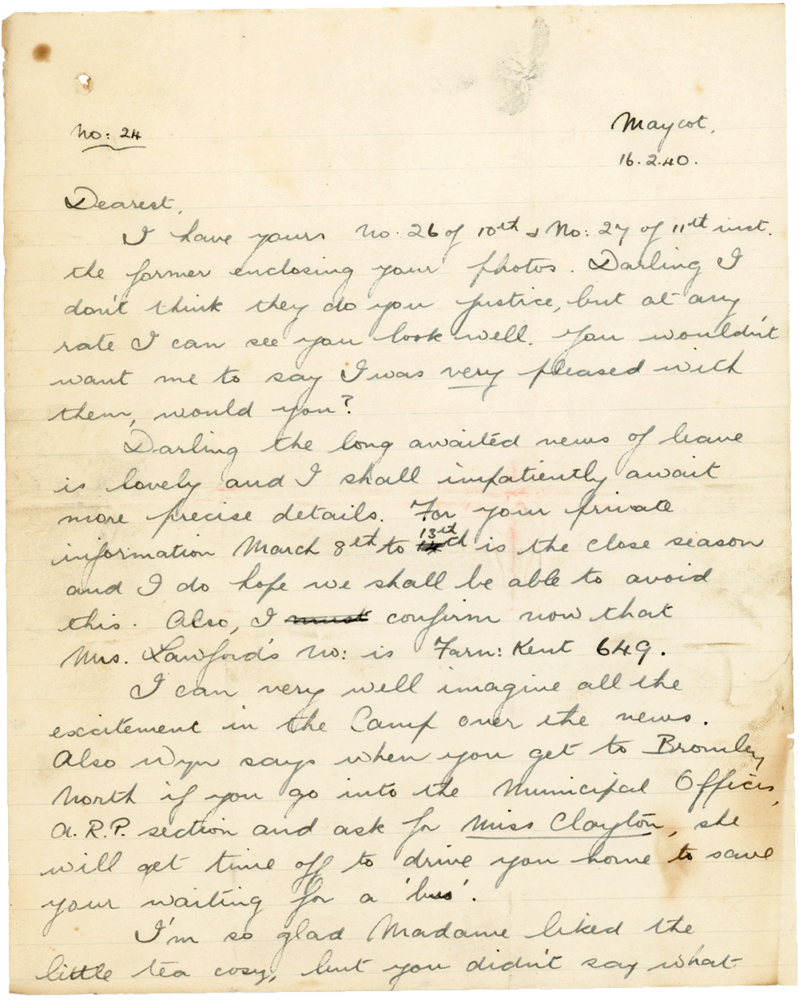 No: 24
Maycot,
16.2.40.
Dearest,
I have yours No: 26 of 10th & No: 27 of 11th inst.
the former enclosing your photos. Darling I
don't think they do you justice, but at any
rate I can see you look well. You wouldn't
want me to say I was very pleased with
them, would you?
Darling the long awaited news of leave
is lovely and I shall impatiently await
more precise details. For your private
information March 8th to 13th is the close season
and I do hope we shall be able to avoid
this. Also, I must confirm now that
Mrs. Lawford's No: is Farn: Kent 649.
I can very well imagine all the
excitement in the Camp over the news.
Also Wyn says when you get to Bromley
North if you go into the Municipal Offices,
A.R.P. section and ask for Miss Clayton, she
will get time off to drive you home to save
your waiting for a 'bus'.
I'm so glad Madame liked the
little tea cosy, but you didn't say what